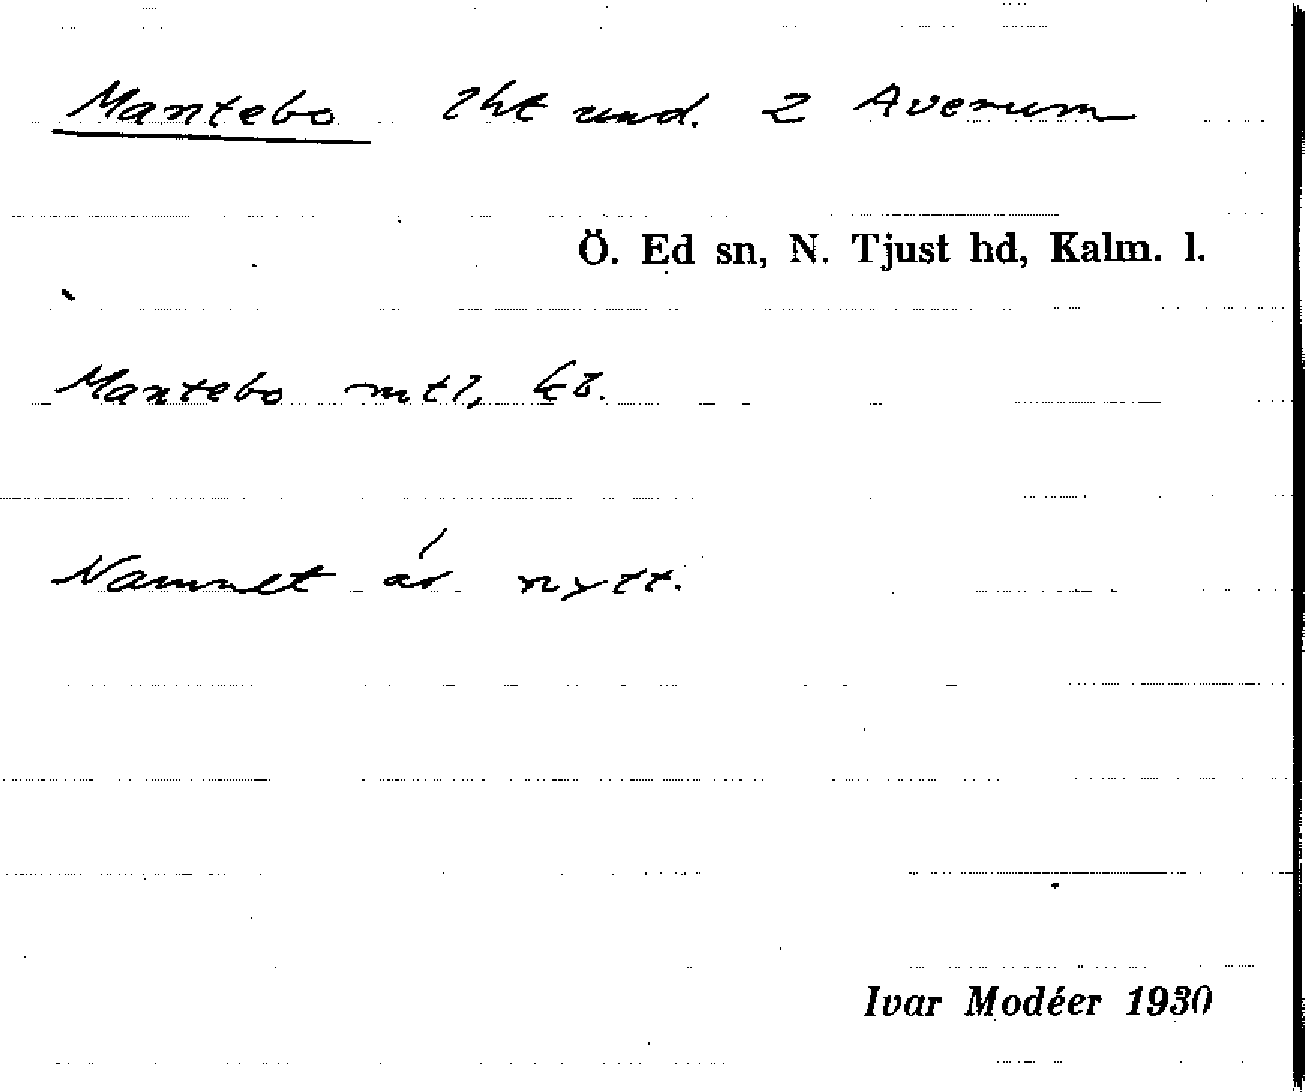 Mantebo lht und. 2 Averum
Ö. Ed sn, N. Tjust hd, Kalm. l.
Mantebo mtl, kb.
Namnet är nytt.
Ivar Modéer 1930